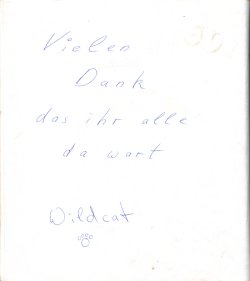 Vielen
Dank
das ihr alle
da wart
Wildcat